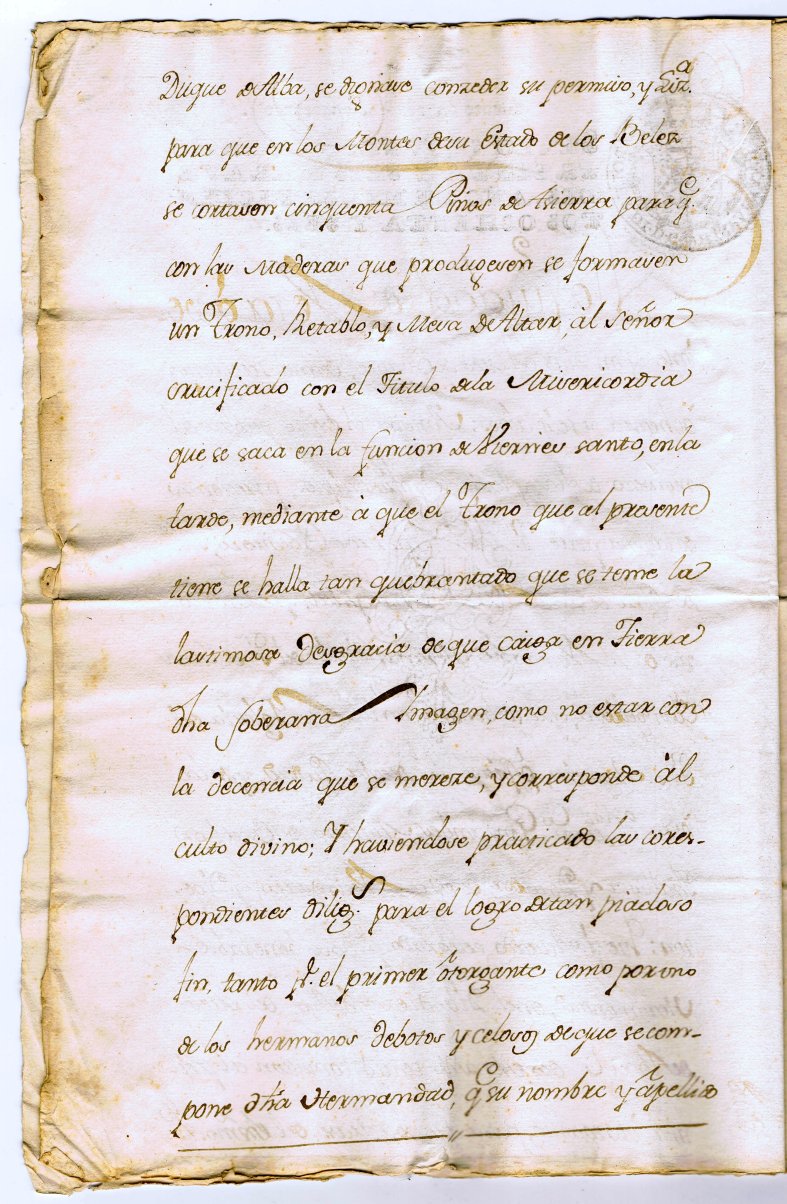 Duque de Alba, se dignase conzeder su permiso, y Liz.ª
para que en los Montes de su Estado de los Belez
se cortasen cinquenta Pinos de tierra para q.e
con las Maderas que produgesen se formasen
un Trono, Retablo, y Mesa de Altar, àl Señor
crucificado con el Titulo de la Misericordia
que se saca en la funcion de Viernes santo, en la
tarde, mediante à que el Trono que al presente
tiene se halla tan quebrantado que se teme la
lastimosa desgracia de que caiga en Tierra
dha soberana Imagen, como no estar con
la decencia que se mereze, y corresponde àl
culto divino; Y haviendose practicado las cores-
pondientes dilig.s para el logro de tan piadoso
fin, tanto p.r el primer otorgante como por uno
de los hermanos debotos y celosos de que se com-
pone dha Hermandad, q.e su nombre y apellido